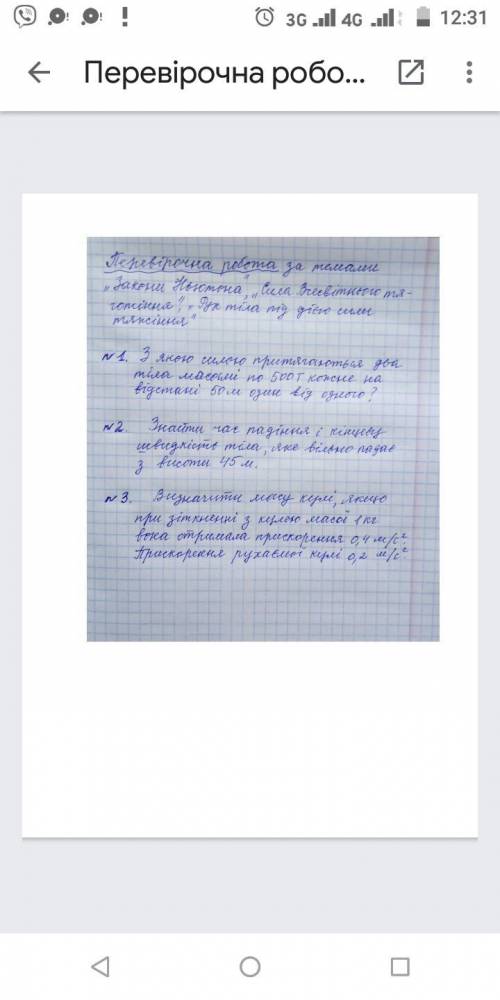 3G 4G 12:31
Перевірочна робо...
Перевірочна робота за темами
„Закони Ньютона", „Сила Всесвітнього тя-
готіння", „Рух тіла під дією сили
тяжіння"
№1. З якою силою притягаються два
тіла масами по 500т кожне на
відстані 50м один від одного?
№2. Знайти час падіння і кінцеву
швидкість тіла, яке вільно падає
з висоти 45м.
№3. Визначити масу кулі, якщо
при зіткненні з кулею масої 1кг
вона отримала прискорення 0,4 м/с²
Прискорення рухаємої кулі 0,2 м/с²